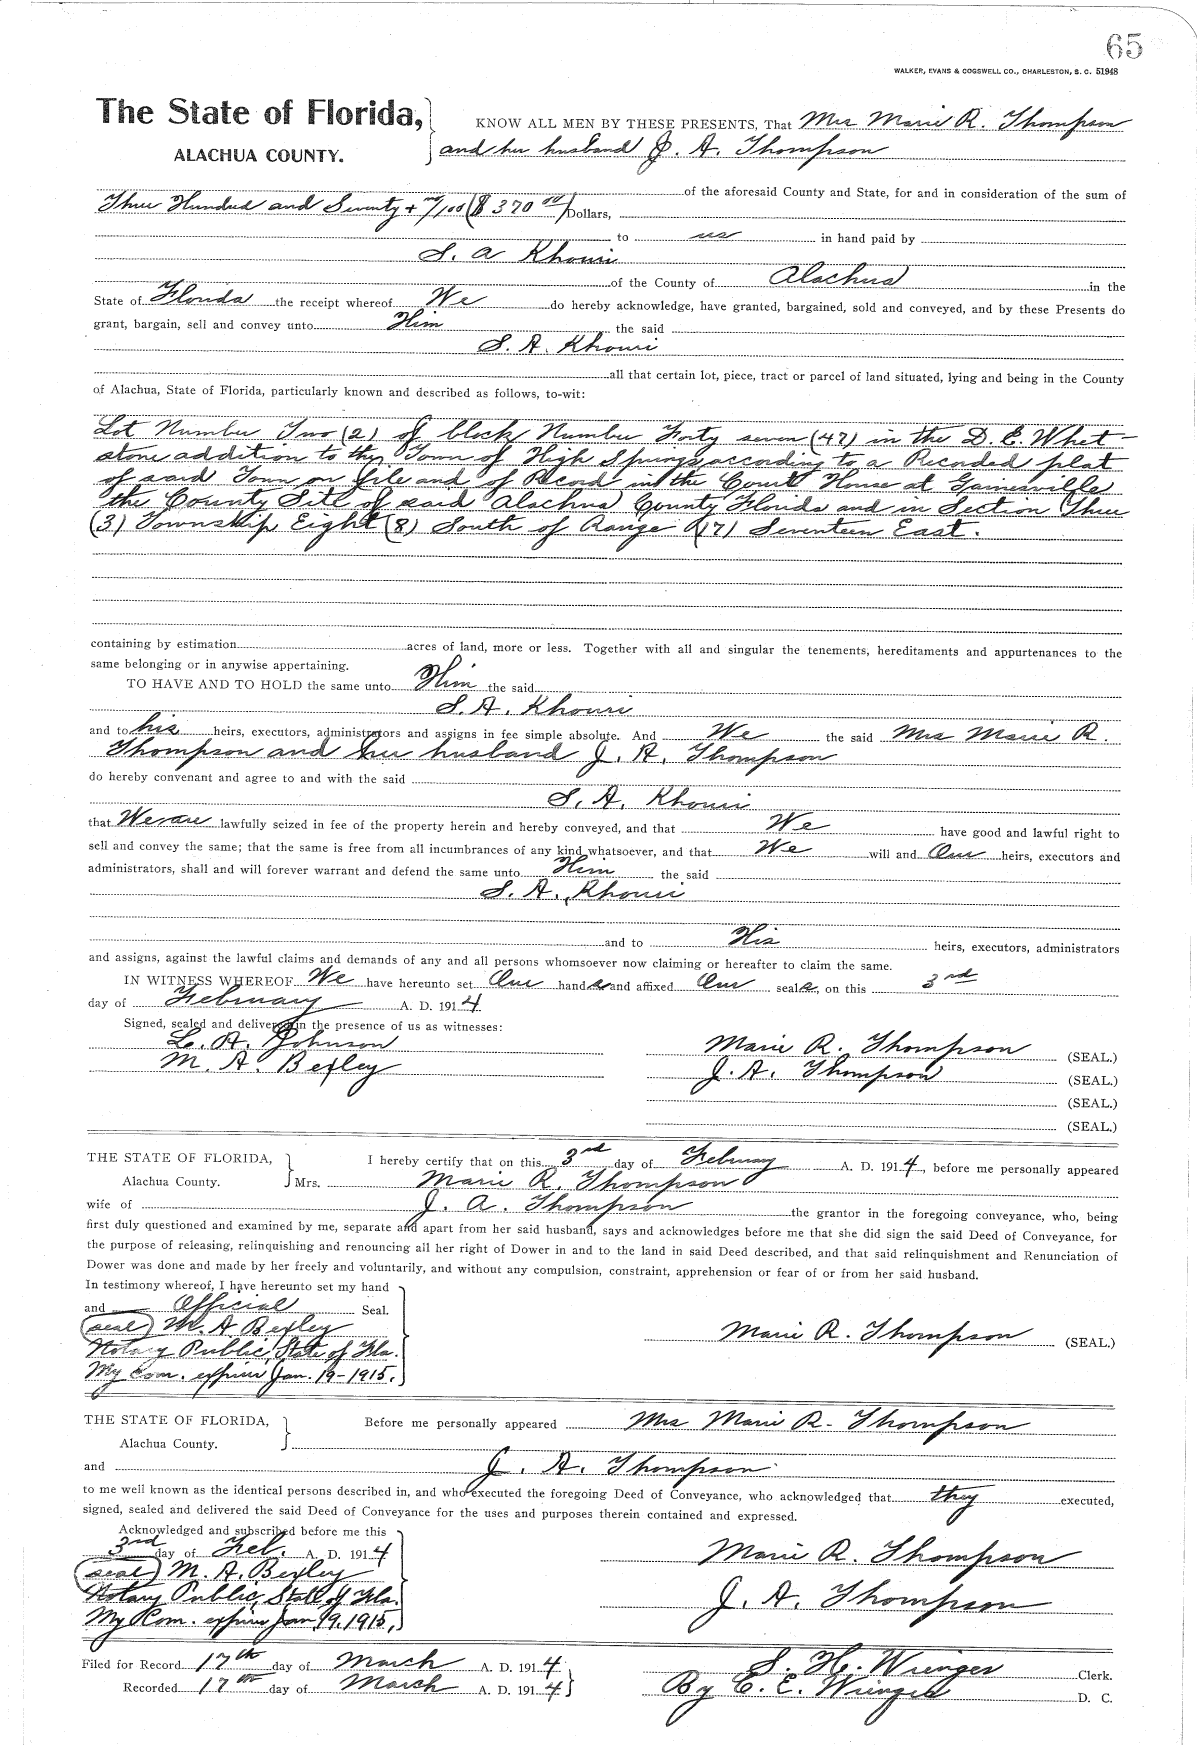 65
WALKER, EVANS & COGSWELL CO., CHARLESTON, S. C. 51948
The State of Florida,
ALACHUA COUNTY.
KNOW ALL MEN BY THESE PRESENTS, That Mrs Marie R. Thompson
and her husband J. A. Thompson
of the aforesaid County and State, for and in consideration of the sum of
Three Hundred and Seventy + no/100 ($370 00) Dollars,
to us in hand paid by
S. A Khouri
of the County of Alachua in the
State of Florida the receipt whereof We do hereby acknowledge, have granted, bargained, sold and conveyed, and by these Presents do
grant, bargain, sell and convey unto Him the said
S. A. Khouri
all that certain lot, piece, tract or parcel of land situated, lying and being in the County
of Alachua, State of Florida, particularly known and described as follows, to-wit:
Lot Number Two (2) of block Number Forty seven (47) in the D. E. Whet-
stone addition to the Town of High Springs according to a Recorded plat
of said Town on file and of Record in the Court House at Gainesville
the County Site of said Alachua County Florida and in Section Three
(3) Township Eight (8) South of Range (17) Seventeen East.
containing by estimation acres of land, more or less. Together with all and singular the tenements, hereditaments and appurtenances to the
same belonging or in anywise appertaining.
TO HAVE AND TO HOLD the same unto Him the said
S. A. Khouri
and to his heirs, executors, administrators and assigns in fee simple absolute. And We the said Mrs Marie R.
Thompson and her husband J. A. Thompson
do hereby convenant and agree to and with the said
S. A. Khouri
that We are lawfully seized in fee of the property herein and hereby conveyed, and that We have good and lawful right to
sell and convey the same; that the same is free from all incumbrances of any kind whatsoever, and that We will and Our heirs, executors and
administrators, shall and will forever warrant and defend the same unto Him the said
S. A. Khouri
and to His heirs, executors, administrators
and assigns, against the lawful claims and demands of any and all persons whomsoever now claiming or hereafter to claim the same.
IN WITNESS WHEREOF We have hereunto set Our hands and affixed Our seals, on this 3rd
day of February A. D. 1914
Signed, sealed and delivered in the presence of us as witnesses:
L. A. Johnson
M. A. Bexley
Marie R. Thompson (SEAL.)
J. A. Thompson (SEAL.)
(SEAL.)
(SEAL.)
THE STATE OF FLORIDA,
Alachua County.
I hereby certify that on this 3rd day of February A. D. 1914, before me personally appeared
Mrs. Marie R. Thompson
wife of J. A. Thompson the grantor in the foregoing conveyance, who, being
first duly questioned and examined by me, separate and apart from her said husband, says and acknowledges before me that she did sign the said Deed of Conveyance, for
the purpose of releasing, relinquishing and renouncing all her right of Dower in and to the land in said Deed described, and that said relinquishment and Renunciation of
Dower was done and made by her freely and voluntarily, and without any compulsion, constraint, apprehension or fear of or from her said husband.
In testimony whereof, I have hereunto set my hand
and Official Seal.
(seal) M. A Bexley
Notary Public, State of Fla.
My Com. expires Jan. 19-1915.
Marie R. Thompson (SEAL.)
THE STATE OF FLORIDA,
Alachua County.
Before me personally appeared Mrs Marie R. Thompson
and J. A. Thompson
to me well known as the identical persons described in, and who executed the foregoing Deed of Conveyance, who acknowledged that they executed,
signed, sealed and delivered the said Deed of Conveyance for the uses and purposes therein contained and expressed.
Acknowledged and subscribed before me this
3rd day of Feb. A. D. 1914
(seal) M. A. Bexley
Notary Public, State of Fla.
My Com. expires Jan 19, 1915.
Marie R. Thompson
J. A. Thompson
Filed for Record 17th day of March A. D. 1914
Recorded 17th day of March A. D. 1914
S. H. Wienges Clerk.
By E. E. Wienges D. C.